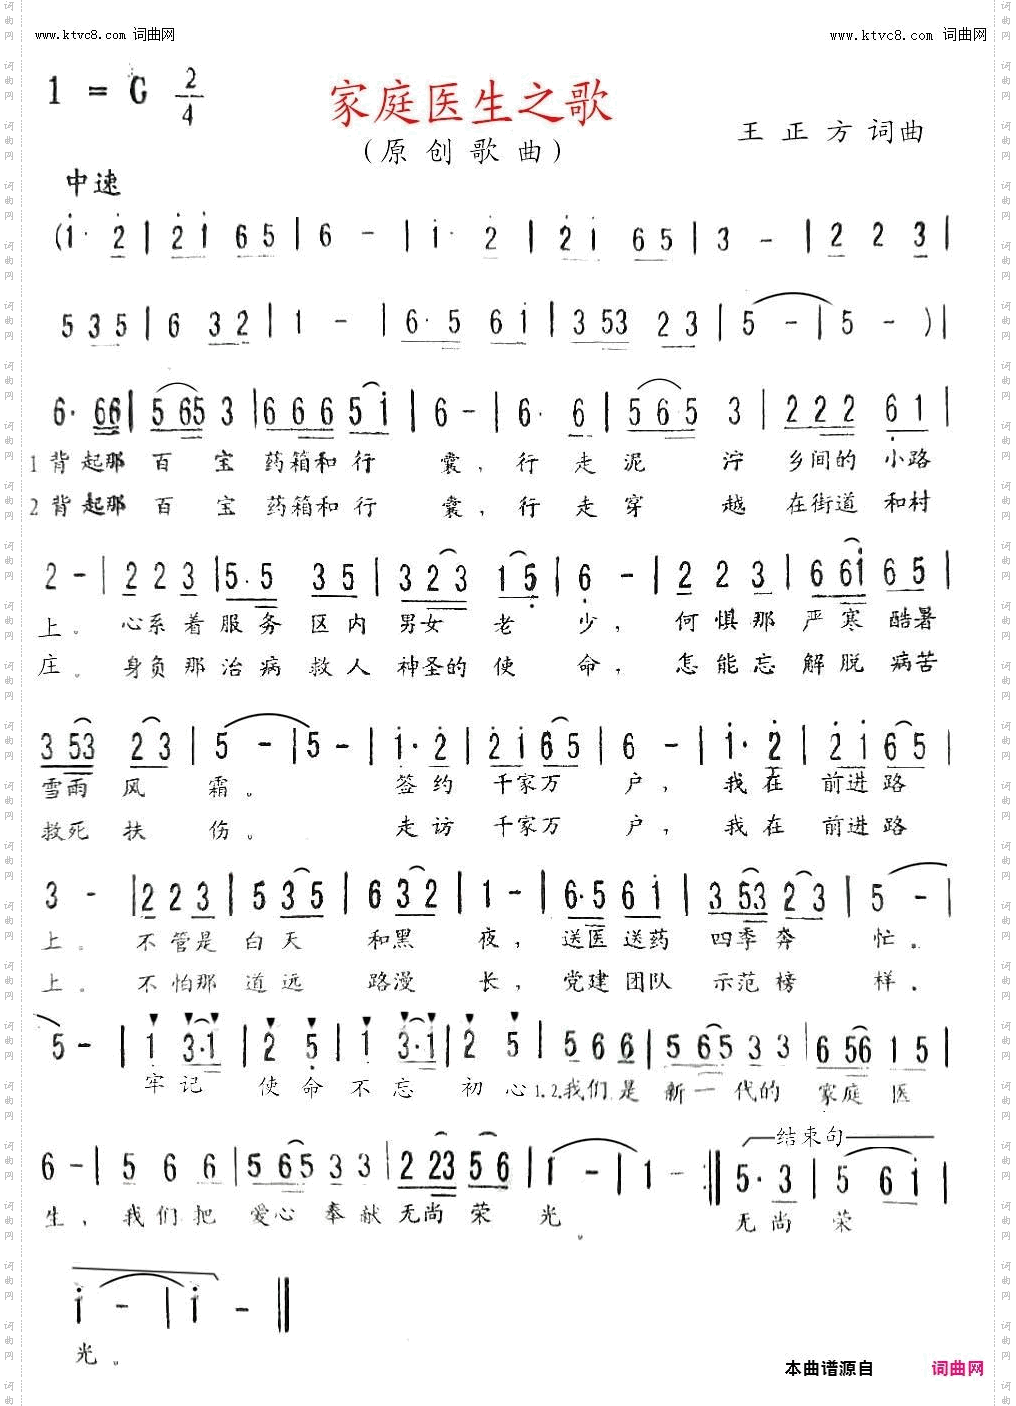 www.ktvc8.com 词曲网 www.ktvc8.com 词曲网
1 = G 2/4 家庭医生之歌
(原创歌曲) 王正方词曲
中速
(i· 2 | 2 i 6 5 | 6 - | i· 2 | 2 i 6 5 | 3 - | 2 2 3 |
5 3 5 | 6 3 2 | 1 - | 6· 5 6 i | 3 53 2 3 | 5 - | 5 - ) |
6· 66 | 5 65 3 | 6 6 6 5 i | 6 - | 6· 6 | 5 6 5 3 | 2 2 2 6 1 |
1背起那百宝药箱和行囊,行走泥泞乡间的小路
2背起那百宝药箱和行囊,行走穿越在街道和村
2 - | 2 2 3 | 5· 5 3 5 | 3 2 3 1 5 | 6 - | 2 2 3 | 6 6i 6 5 |
上。心系着服务区内男女老少,何惧那严寒酷暑
庄。身负那治病救人神圣的使命,怎能忘解脱病苦
3 53 2 3 | 5 - | 5 - | i· 2 | 2 i 6 5 | 6 - | i· 2 | 2 i 6 5 |
雪雨风霜。签约千家万户,我在前进路
救死扶伤。走访千家万户,我在前进路
3 - | 2 2 3 | 5 3 5 | 6 3 2 | 1 - | 6· 5 6 i | 3 53 2 3 | 5 - |
上。不管是白天和黑夜,送医送药四季奔忙。
上。不怕那道远路漫长,党建团队示范榜样.
5 - | 1 3·1 | 2 5 | 1 3·1 | 2 5 | 5 6 6 | 5 65 3 3 | 6 56 1 5 |
牢记使命不忘初心1.2.我们是新一代的家庭医
结束句
6 - | 5 6 6 | 5 65 3 3 | 2 23 5 6 | 1 - | 1 - :‖ 5· 3 | 5 6 i |
生,我们把爱心奉献无尚荣光。无尚荣
i - | i - ‖
光。
本曲谱源自 词曲网